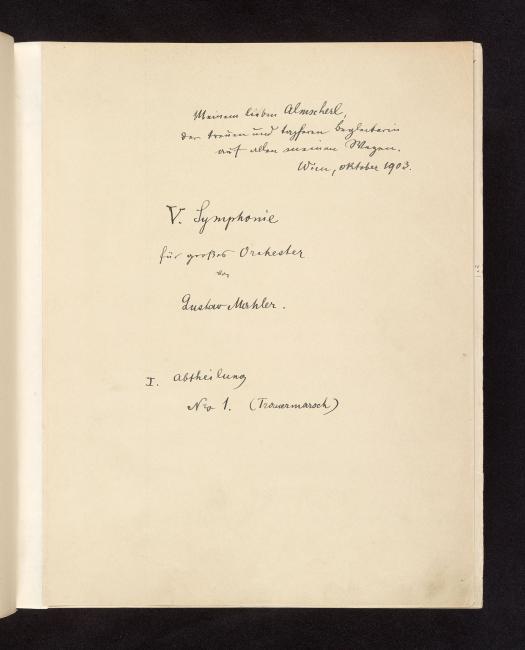 Meinem lieben Almscherl,
der treuen und tapferen Begleiterin
auf allen meinen Wegen.
Wien, Oktober 1903.
V. Symphonie
für großes Orchester
von
Gustav Mahler.
I. Abtheilung
Nro 1. (Trauermarsch)